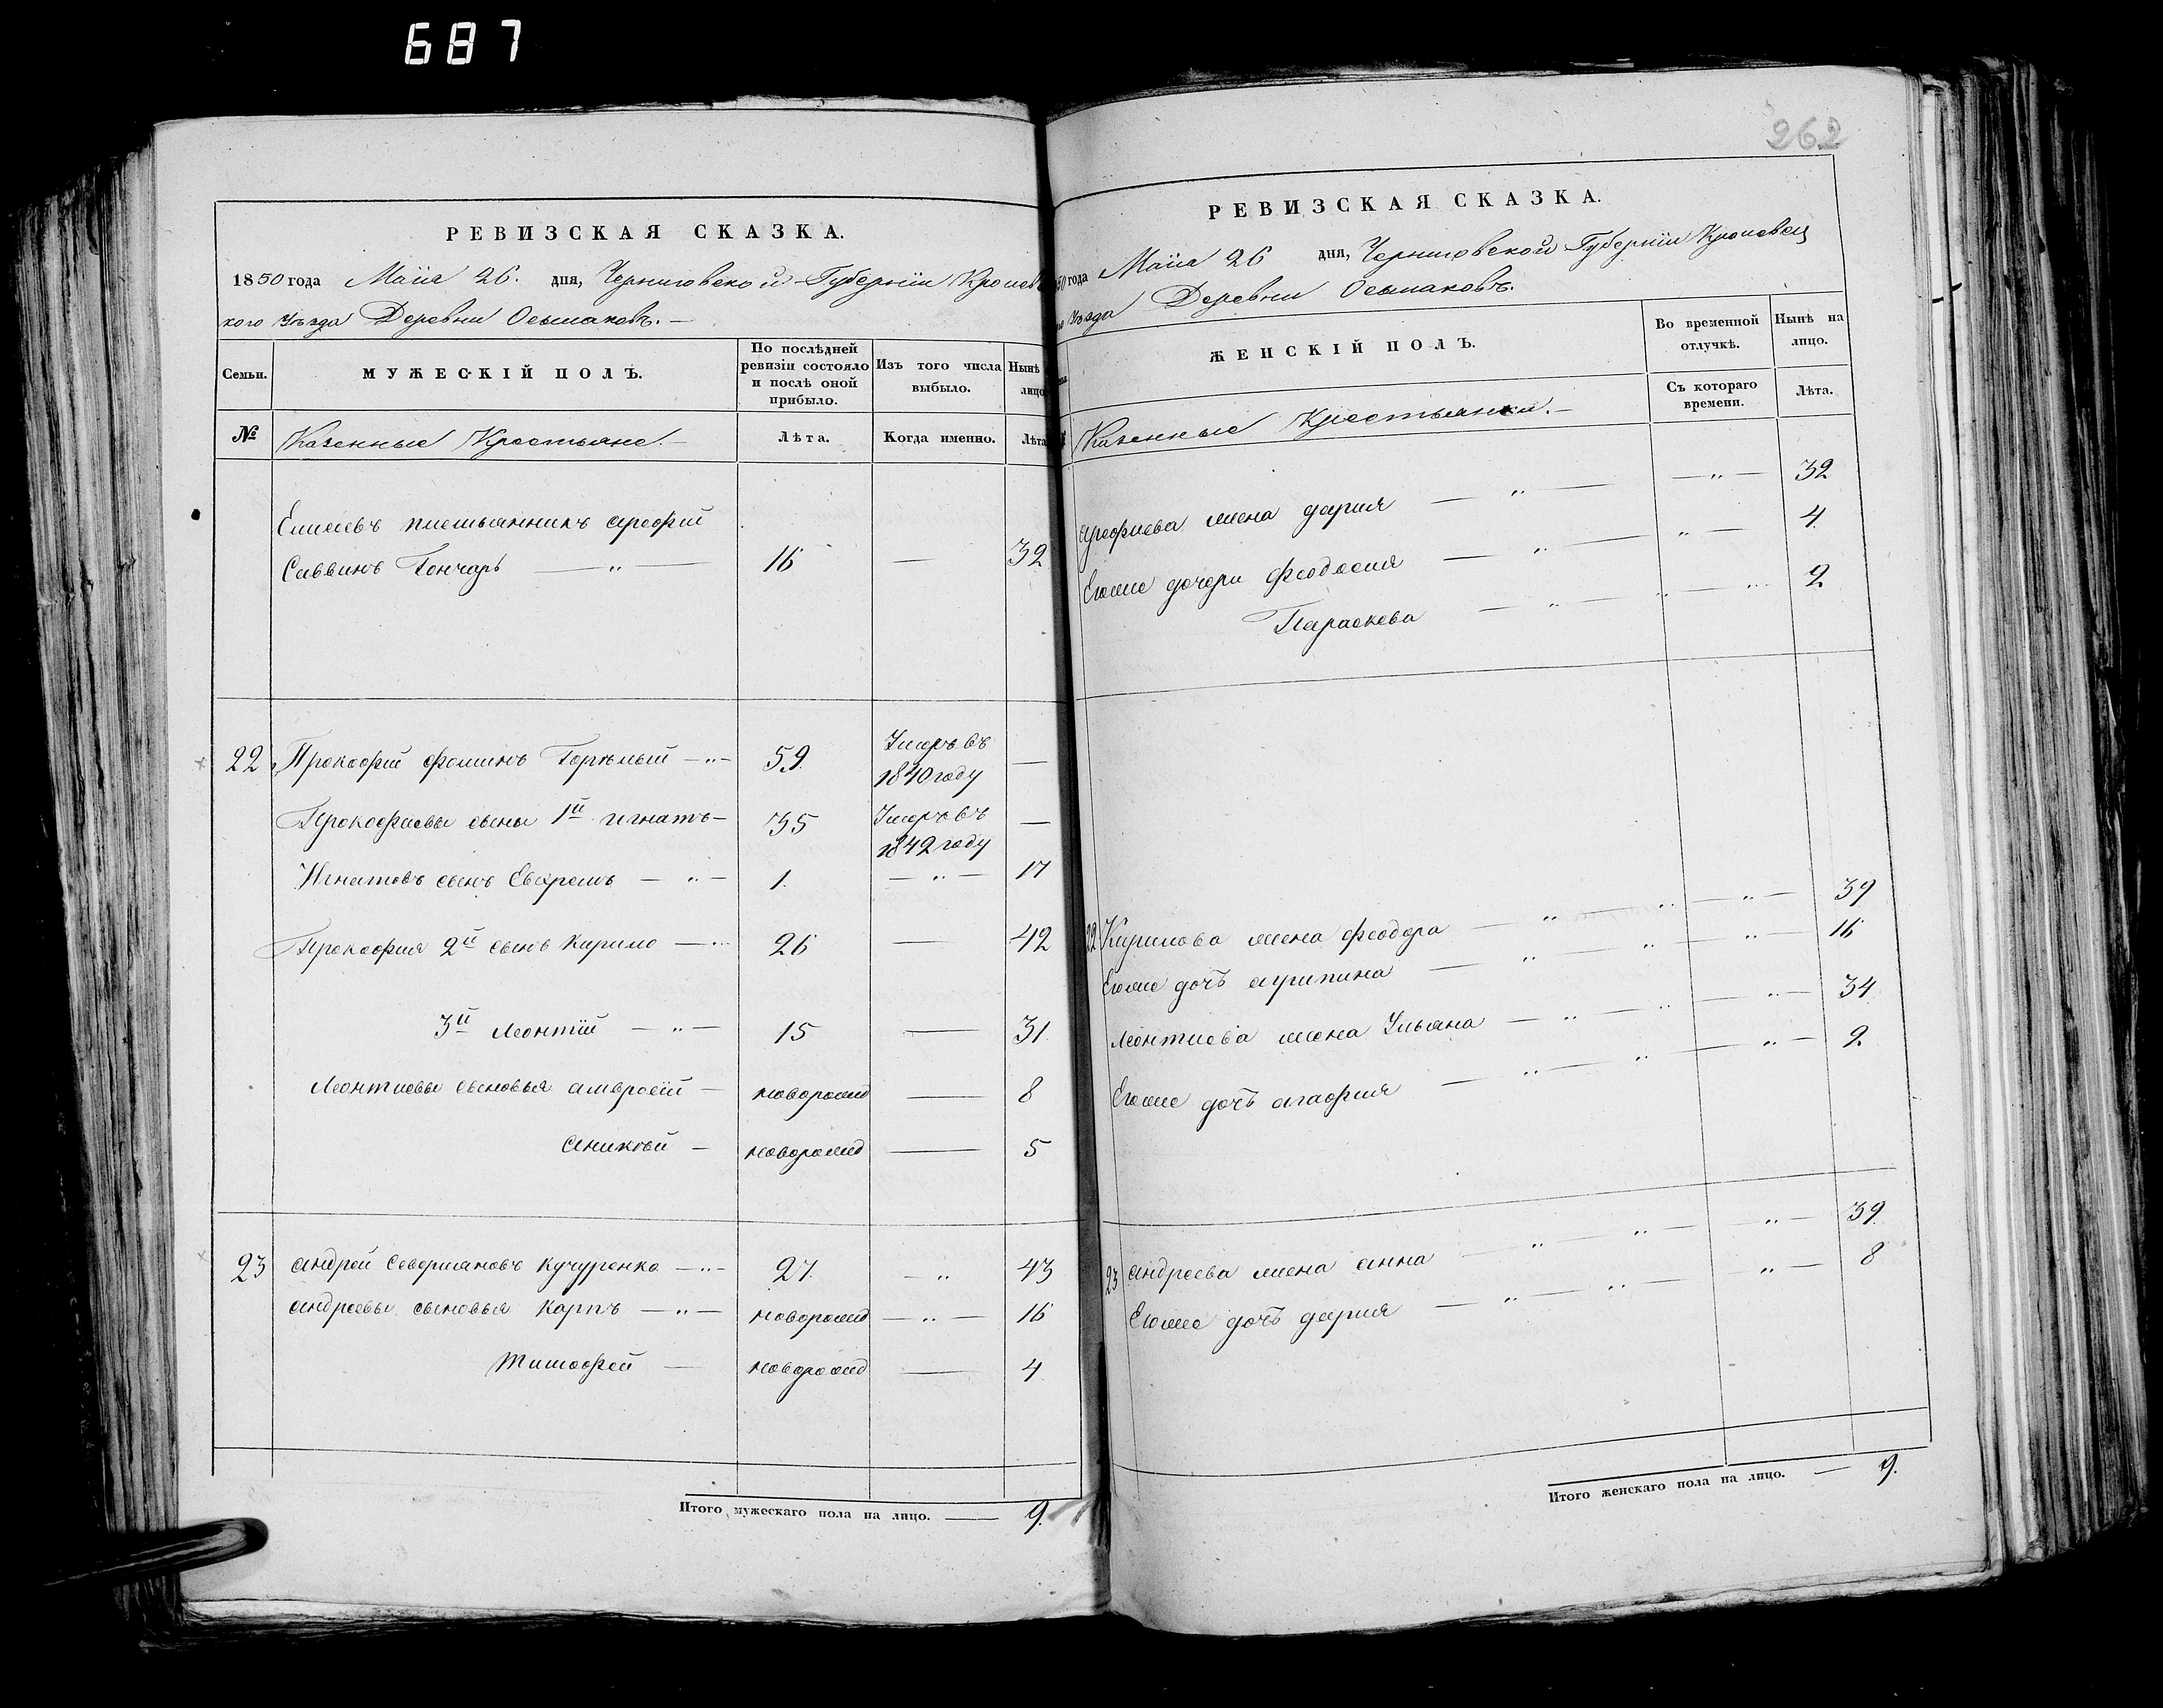 687
262
РЕВИЗСКАЯ СКАЗКА.
1850 года Маїя 26. дня, Черниговской Губерніи Кролев
кого Уѣзда Деревни Осьмаковъ.
Семьи.
МУЖЕСКІЙ ПОЛЪ.
По послѣдней ревизіи состояло и послѣ оной прибыло.
Изъ того числа выбыло.
Нынѣ лицо
№ Казенные Крестьяне.
Лѣта.
Когда именно.
Лѣта
Елисеевъ племьянникъ арефий
Саввинъ Гончаръ — „ — 16 — 32
22 Прокофий фоминъ Горкмый — „ — 59. Умеръ въ 1840 году —
Прокофиевы сыны 1й игнатъ — 35 Умеръ въ 1842 году —
Игнатовъ сынъ Евхремъ — „ — 1. — „ — 17
Прокофия 2й сынъ Кирило — „ 26 — 42
3й Леонтій — „ — 15 — 31
Леонтиевы сыновья амвросій — новорожд — 8
Аникѣй — новорожд — 5
23 Андрей Севериановъ Кучуренко — „ — 27. — „ 43
андреевы сыновья Карпъ — „ — новорожд — „ — 16
Тимофей — новорожд — 4
Итого мужескаго пола на лицо. — 9.
РЕВИЗСКАЯ СКАЗКА.
50 года Маїя 26 дня, Черниговской Губерніи Кролевец
Уѣзда Деревни Осьмаковъ.
ЖЕНСКІЙ ПОЛЪ.
Во временной отлучкѣ.
Нынѣ на лицо.
Съ котораго времени.
Лѣта.
Казенные Крестьянки.
арефиева жена дария — „ — — „ — 32
Егоже дочери феодосия — „ — „ — 4
Параскева — „ — „ — „ 2
22 Кирилова жена феодора — „ — „ — „ — 39
Егоже дочь агрипина — „ — „ — „ — 16
Леонтиева жена Ульяна — „ — „ — „ — 34
Егоже дочь агафия — „ — „ — „ — 2.
23 андреева жена анна — „ — „ — „ — 39.
Егоже дочь дария — „ — „ — „ — 8
Итого женскаго пола на лицо. — 9.